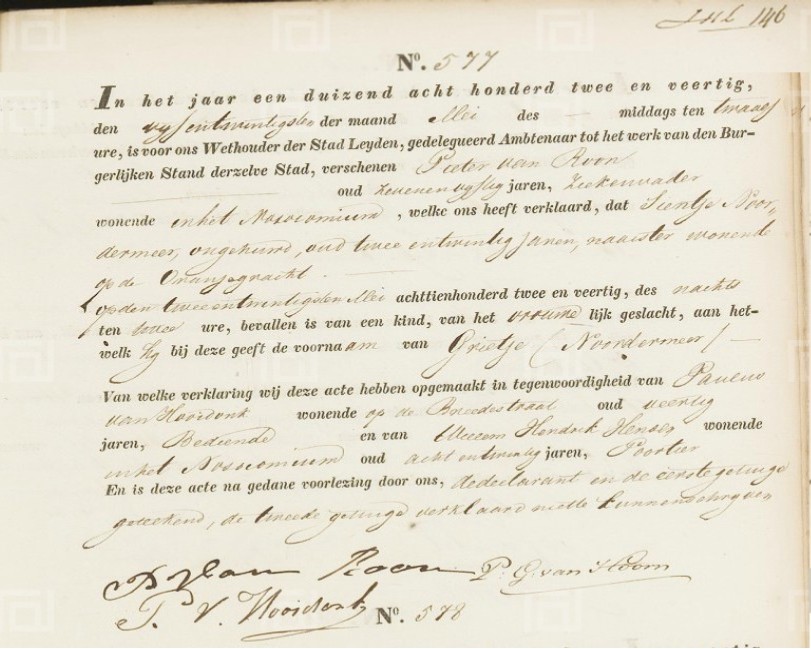 146
No. 577
In het jaar een duizend acht honderd twee en veertig,
den vyfentwintigsten der maand Mei des — middags ten twaalf
ure, is voor ons Wethouder der Stad Leyden, gedelegueerd Ambtenaar tot het werk van den Bur-
gerlijken Stand derzelve Stad, verschenen Pieter van Roon
oud zevenenvyftig jaren, Ziekenvader
wonende in het Nosocomium, welke ons heeft verklaard, dat Sientje Noor-
dermeer, ongehuwd, oud twee entwintig jaren, naaister wonende
op de Oranjegracht.
op den tweeentwintigsten Mei achttienhonderd twee en veertig, des nachts
ten twee ure, bevallen is van een kind, van het vrouwelijk geslacht, aan het-
welk hy bij deze geeft de voornaam van Grietje (Noordermeer) —
Van welke verklaring wij deze acte hebben opgemaakt in tegenwoordigheid van Paulus
van Hooidonk wonende op de Breedestraat oud veertig
jaren, Bediende en van Willem Hendrik wonende
in het Nosocomium oud acht entwintig jaren, Portier
En is deze acte na gedane voorlezing door ons, de declarant en de eerste getuige
geteekend, de tweede getuige verklaard niet te kunnen schryven
P. van Roon P. G. van Hoorn
P. V. Hooidonk
No. 578